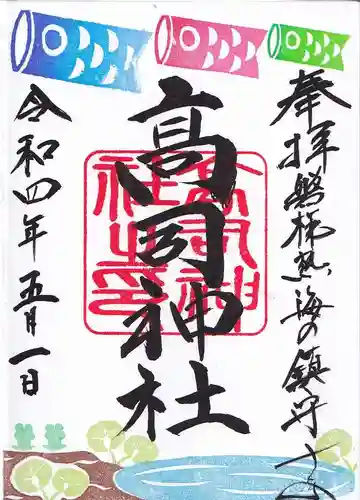 奉拝 磐梯熱海の鎮守
高司神社
高司神
社之印
令和四年五月一日